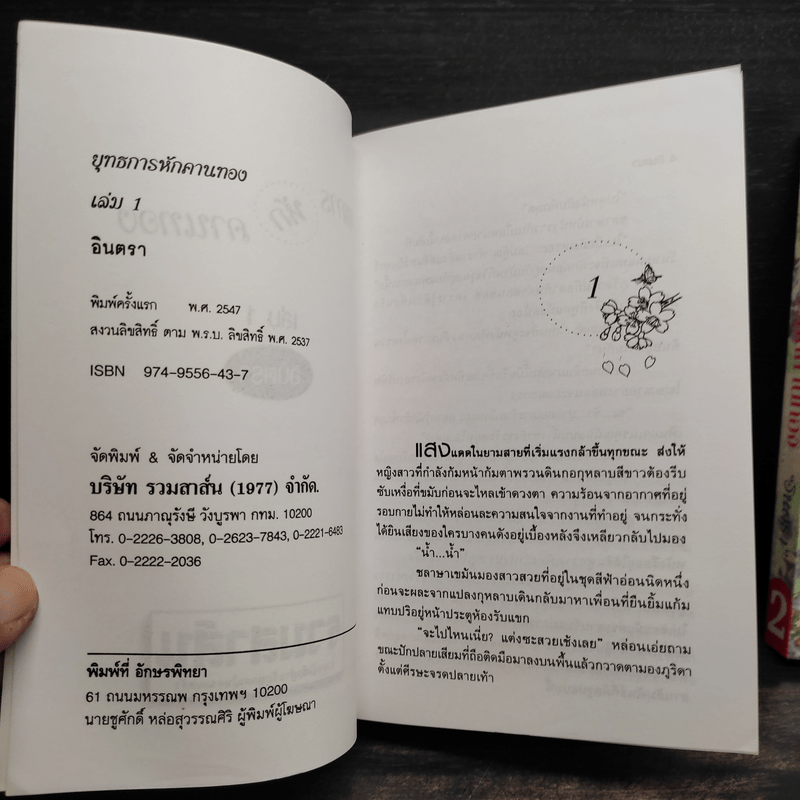 ยุทธการหักคานทอง
เล่ม 1
อินตรา
พิมพ์ครั้งแรก พ.ศ. 2547
สงวนลิขสิทธิ์ ตาม พ.ร.บ. ลิขสิทธิ์ พ.ศ. 2537
ISBN 974-9556-43-7
จัดพิมพ์ & จัดจำหน่ายโดย
บริษัท รวมสาส์น (1977) จำกัด.
864 ถนนภาณุรังษี วังบูรพา กทม. 10200
โทร. 0-2226-3808, 0-2623-7843, 0-2221-6483
Fax. 0-2222-2036
พิมพ์ที่ อักษรพิทยา
61 ถนนมหรรณพ กรุงเทพฯ 10200
นายชูศักดิ์ หล่อสุวรรณศิริ ผู้พิมพ์ผู้โฆษณา
1
แสงแดดในยามสายที่เริ่มแรงกล้าขึ้นทุกขณะ ส่งให้
หญิงสาวที่กำลังก้มหน้าก้มตาพรวนดินกอกุหลาบสีขาวต้องรีบ
ซับเหงื่อที่ขมับก่อนจะไหลเข้าดวงตา ความร้อนจากอากาศที่อยู่
รอบกายไม่ทำให้หล่อนละความสนใจจากงานที่ทำอยู่ จนกระทั่ง
ได้ยินเสียงของใครบางคนดังอยู่เบื้องหลังจึงเหลียวกลับไปมอง
“น้ำ...น้ำ”
ชลาษาเขม้นมองสาวสวยที่อยู่ในชุดสีฟ้าอ่อนนิดหนึ่ง
ก่อนจะผละจากแปลงกุหลาบเดินกลับมาหาเพื่อนที่ยืนยิ้มแก้ม
แทบปริอยู่หน้าประตูห้องรับแขก
“จะไปไหนเนี่ย? แต่งซะสวยเช้งเลย” หล่อนเอ่ยถาม
ขณะปักปลายเสียมที่ถือติดมือมาลงบนพื้นแล้วกวาดตามองภูริดา
ตั้งแต่ศีรษะจรดปลายเท้า
2